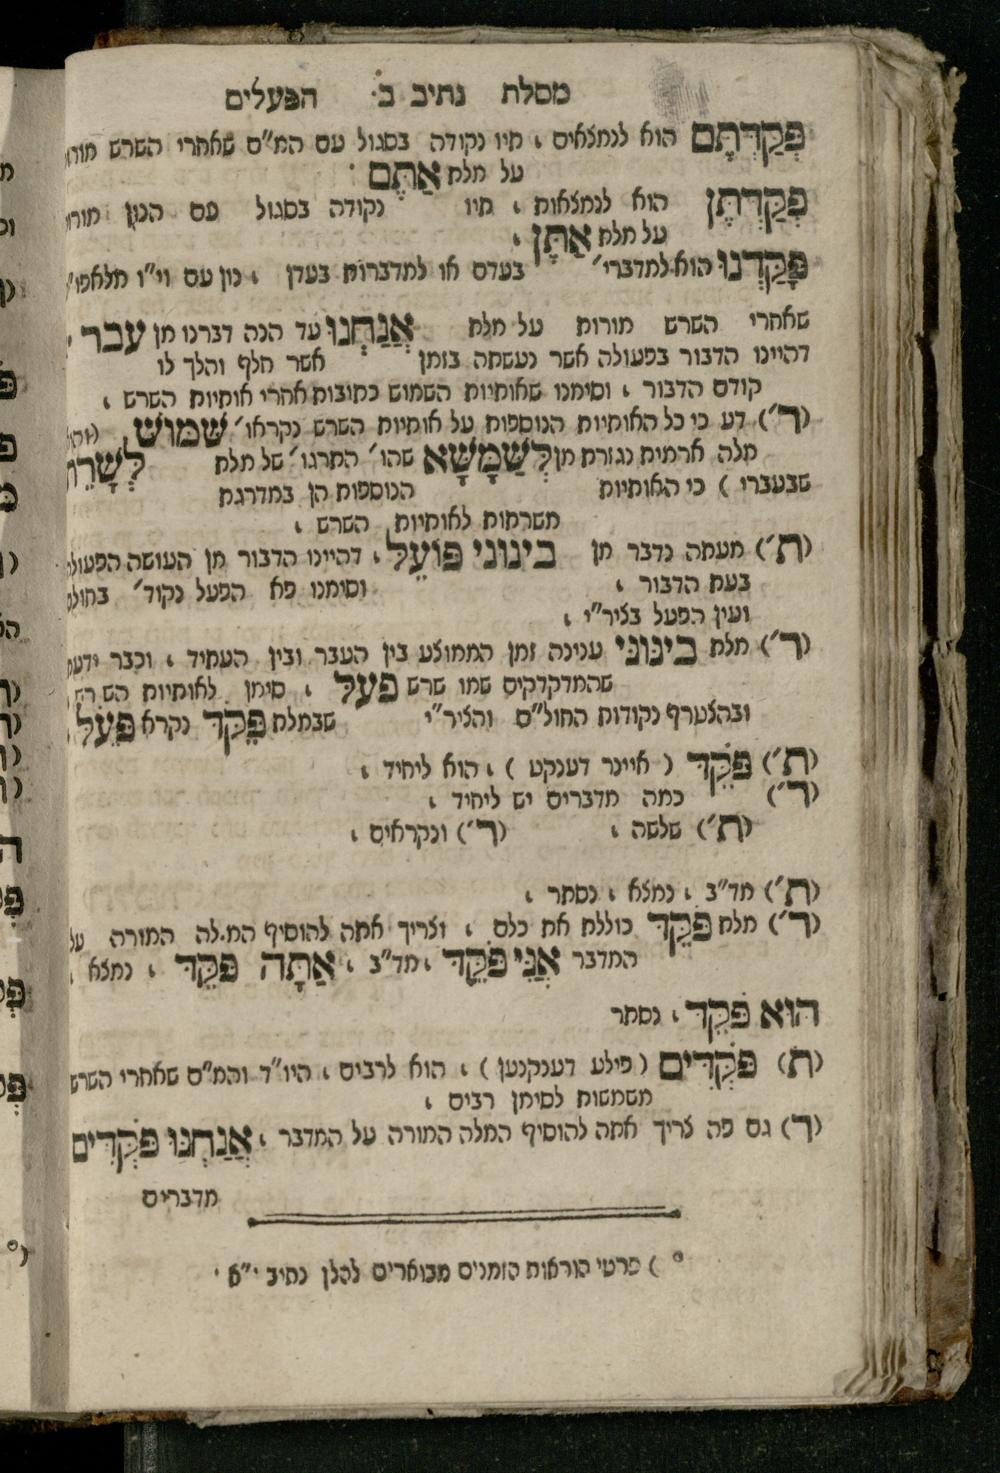 מסלת נתיב ב׳ הפעלים
פְּקַדְתֶּם הוא לנמצאים ، תיו נקודה בסגול עם המ״ם שאחרי השרש
על מלת אַתֶּם
פְּקַדְתֶּן הוא לנמצאות ، תיו נקודה בסגול עם הנון
על מלת אַתֶּן ،
פָּקַדְנוּ הוא למדברי׳ בעדם או למדברות בעדן ، נון עם וי״ו מלאפו״
שאחרי השרש מורות על מלת אֲנַחְנוּ עד הנה דברנו מן עבר
דהיינו הדבור בפעולה אשר נעשתה בזמן אשר חלף והלך לו
קודם הדבור ، וסימנו שאותיות השמוש כתובות אחרי אותיות השרש ،
(ר׳) דע כי כל האותיות הנוספות על אותיות השרש נקראו׳ שמוש
מלה ארמית נגזרת מן לְשַׁמָּשָׁא שהו׳ התרגו׳ של מלת לְשָׁרֵת
שבעברי ) כי האותיות הנוספות הן במדרגת
משרתות לאותיות השרש ،
(ת׳) מעתה נדבר מן בינוני פּוֹעֵל ، דהיינו הדבור מן העושה הפעולה
בעת הדבור ، וסימנו פא הפעל נקוד׳ בחולם
ועין הפעל בציר״י ،
(ר׳) מלת בינוני ענינה זמן הממוצע בין העבר ובין העתיד ، וכבר ידעת
שהמדקדקים שמו שרש פעל ، סימן לאותיות השרש
ובהצטרף נקודות החול״ם והציר״י שבמלת פֹּקֵד נקרא פֹּעֵל ،
(ת׳) פֹּקֵד ( איינר דענקט ) ، הוא ליחיד ،
(ר׳) כמה מדברים יש ליחיד ،
(ת׳) שלשה ، (ר׳) ונקראים ،
(ת׳) מד״ב ، נמצא ، נסתר ،
(ר׳) מלת פֹּקֵד כוללת את כלם ، וצריך אתה להוסיף המלה המורה על
המדבר אֲנִי פֹּקֵד ، מד״ב ، אַתָּה פֹּקֵד ، נמצא ،
הוּא פֹּקֵד ، נסתר
(ת) פֹּקְדִים ( פילע דענקנען ) ، הוא לרבים ، היו״ד והמ״ם שאחרי השרש
משמשות לסימן רבים ،
(ר) גם פה צריך אתה להוסיף המלה המורה על המדבר ، אֲנַחְנוּ פֹּקְדִים
מדברים
° ) פרטי הוראות הזמנים מבוארים להלן נתיב י״א ׳